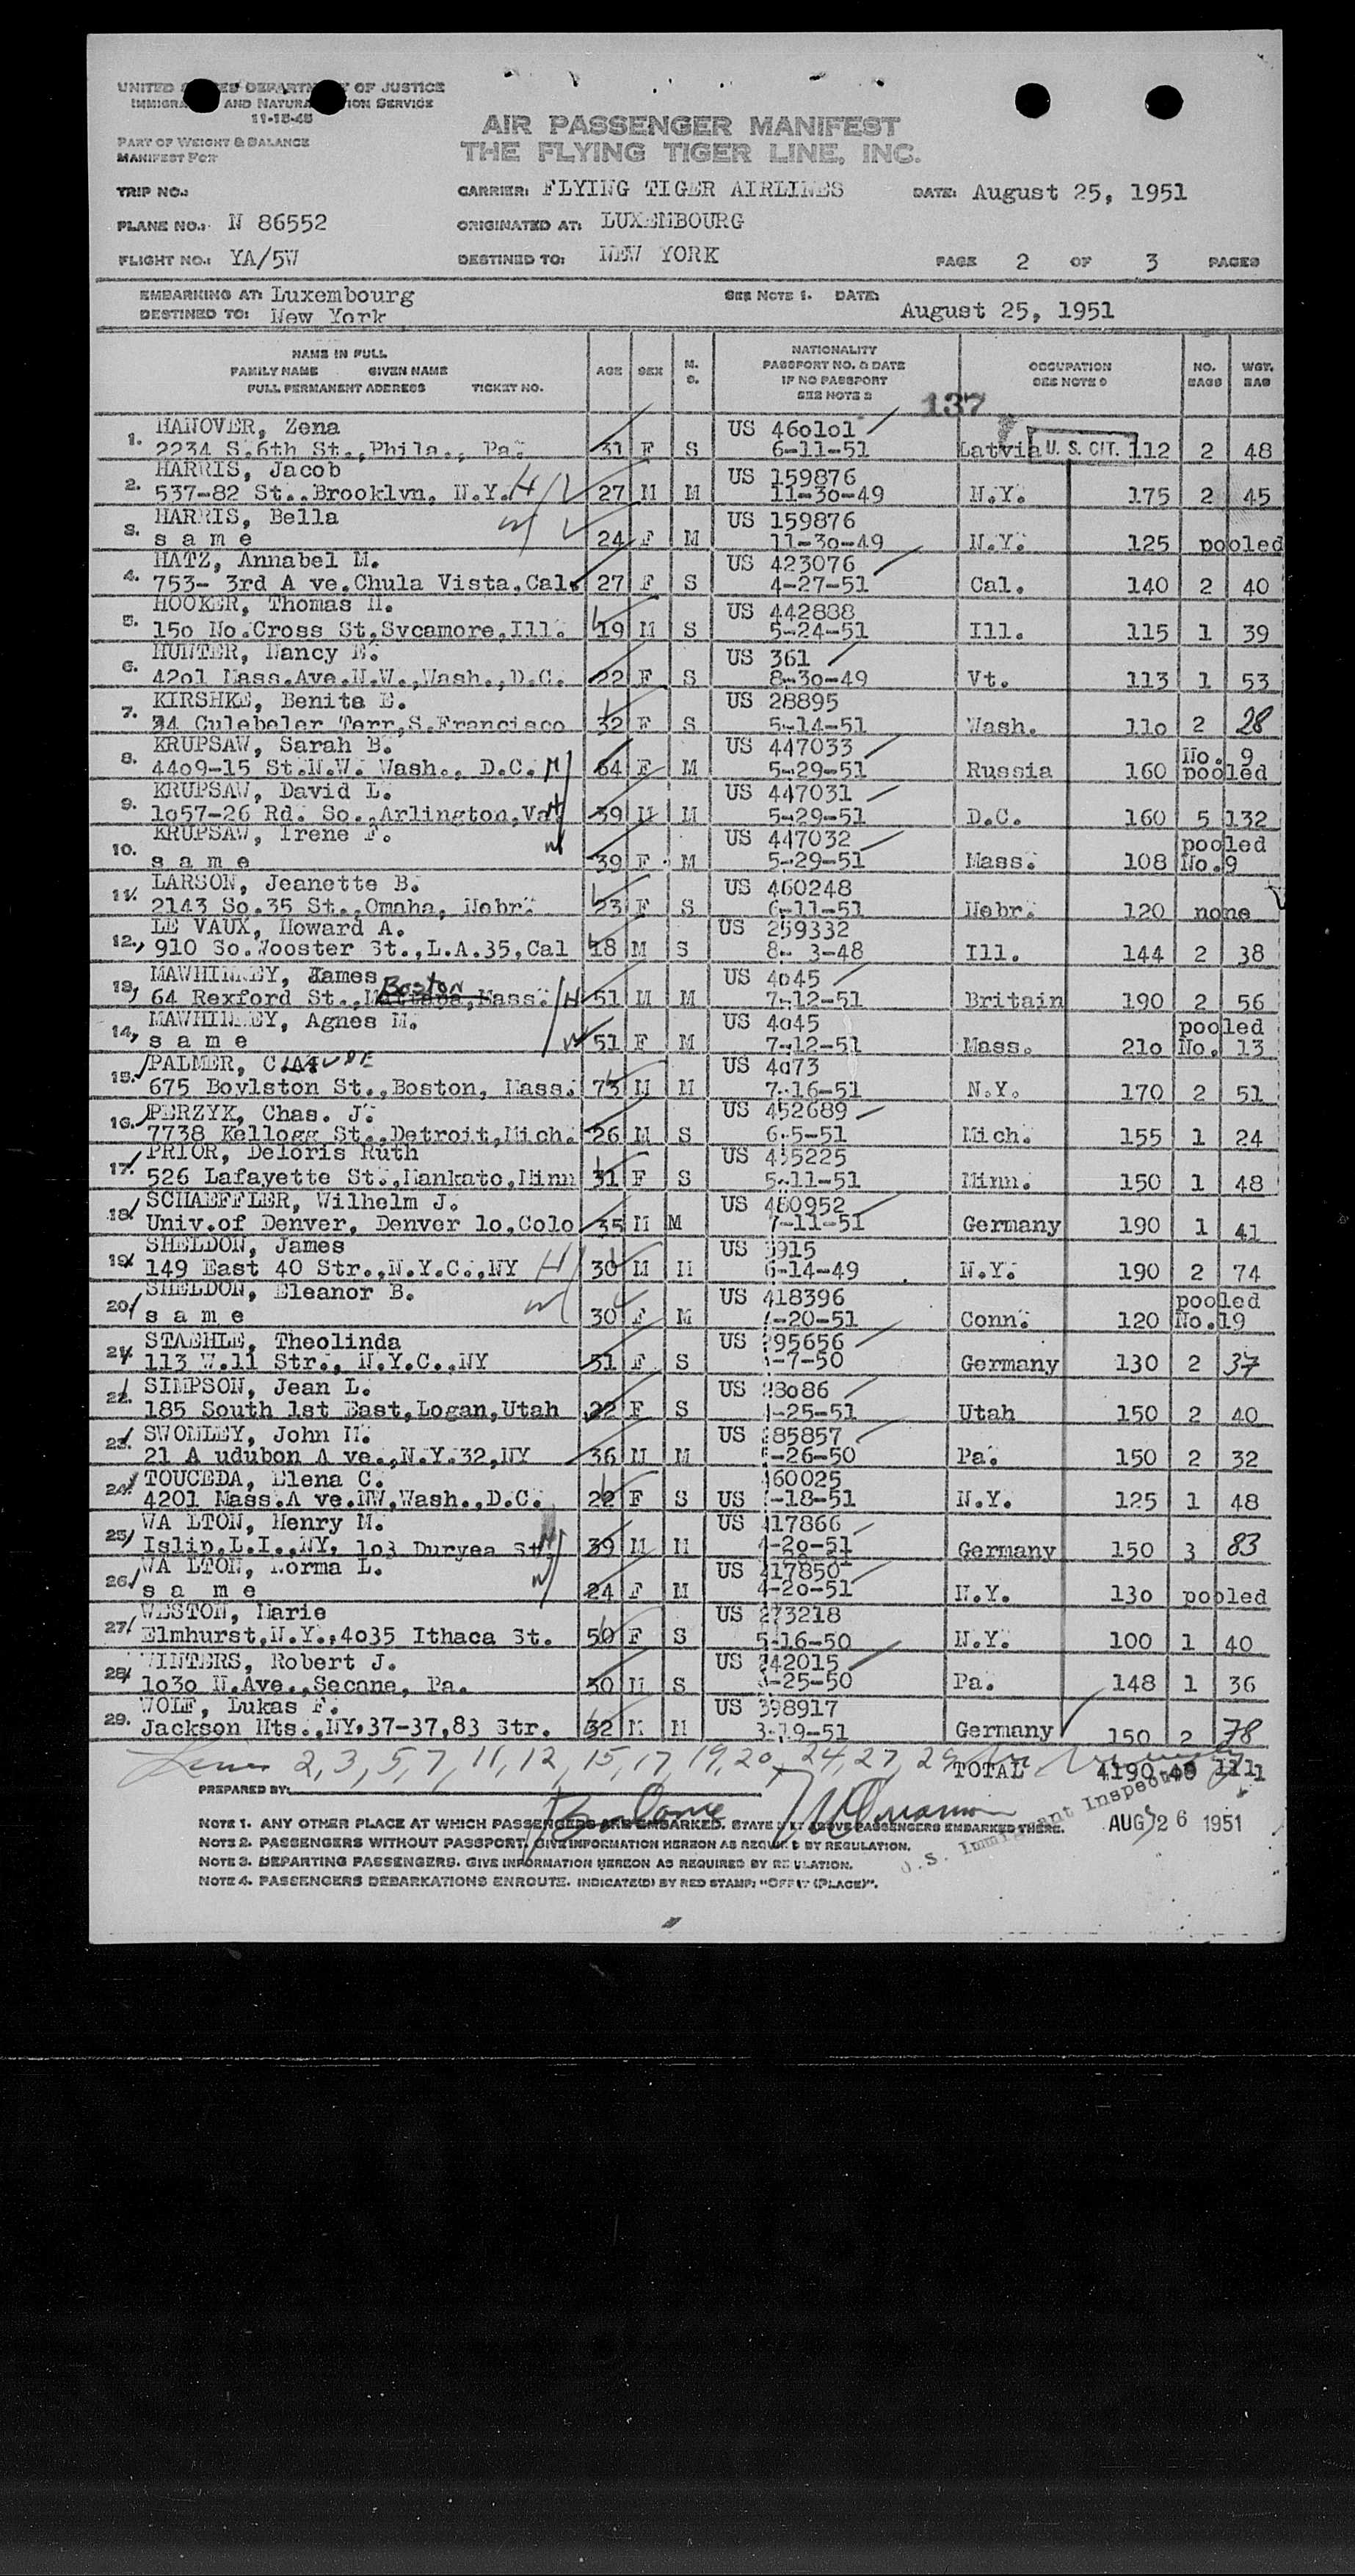 UNITED STATES DEPARTMENT OF JUSTICE
IMMIGRATION AND NATURALIZATION SERVICE
11-15-48
PART OF WEIGHT & BALANCE
MANIFEST FOR
AIR PASSENGER MANIFEST
THE FLYING TIGER LINE, INC.
TRIP NO.: CARRIER: FLYING TIGER AIRLINES DATE: August 25, 1951
PLANE NO.: N 86552 ORIGINATED AT: LUXEMBOURG
FLIGHT NO.: YA/5W DESTINED TO: NEW YORK PAGE 2 OF 3 PAGES
EMBARKING AT: Luxembourg SEE NOTE 1. DATE: August 25, 1951
DESTINED TO: New York
NAME IN FULL
FAMILY NAME GIVEN NAME
FULL PERMANENT ADDRESS TICKET NO.
AGE SEX M. S.
NATIONALITY
PASSPORT NO. & DATE
IF NO PASSPORT
SEE NOTE 2
OCCUPATION
SEE NOTE 9
NO. BAGS
WGT. BAG
137
HANOVER, Zena US 460101
1. 2234 S.6th St.,Phila., Pa. 31 F S 6-11-51 Latvia U. S. CIT. 112 2 48
HARRIS, Jacob US 159876
2. 537-82 St..Brooklyn, N.Y. H 27 M M 11-30-49 N.Y. 175 2 45
HARRIS, Bella US 159876
3. s a m e W 24 F M 11-30-49 N.Y. 125 pooled
HATZ, Annabel M. US 423076
4. 753- 3rd A ve.Chula Vista,Cal. 27 F S 4-27-51 Cal. 140 2 40
HOOKER, Thomas H. US 442888
5. 15o No.Cross St,Sycamore,Ill. 19 M S 5-24-51 Ill. 115 1 39
HUNTER, Nancy E. US 361
6. 42o1 Mass.Ave.N.W.,Wash.,D.C. 22 F S 8-30-49 Vt. 113 1 53
KIRSHKE, Benita E. US 28895
7. 34 Culebeler Terr,S.Francisco 32 F S 5-14-51 Wash. 11o 2 28
KRUPSAW, Sarah B. US 447033 No. 9
8. 44o9-15 St.N.W. Wash., D.C. 64 F M 5-29-51 Russia 160 pooled
KRUPSAW, David L. US 447031
9. 1o57-26 Rd. So.,Arlington,Va. H 39 M M 5-29-51 D.C. 160 5 132
KRUPSAW, Irene F. US 447032 pooled
10. s a m e W 39 F M 5-29-51 Mass. 108 No.9
LARSON, Jeanette B. US 460248
11. 2143 So.35 St.,Omaha, Nebr. 23 F S 6-11-51 Nebr. 120 none
LE VAUX, Howard A. US 259332
12. 910 So.Wooster St.,L.A.35,Cal 18 M S 8- 3-48 Ill. 144 2 38
MAWHINNEY, James US 4o45
Boston
13. 64 Rexford St., Mattapa,Mass. H 51 M M 7-12-51 Britain 190 2 56
MAWHINNEY, Agnes M. US 4o45 pooled
14. s a m e W 51 F M 7-12-51 Mass. 21o No. 13
PALMER, CLAUDE US 4o73
15. 675 Boylston St.,Boston, Mass. 73 M M 7-16-51 N.Y. 170 2 51
PERZYK, Chas. J. US 452689
16. 7738 Kellogg St.,Detroit,Mich. 26 M S 6-5-51 Mich. 155 1 24
PRIOR, Deloris Ruth US 435225
17. 526 Lafayette St.,Mankato,Minn 31 F S 5-11-51 Minn. 150 1 48
SCHAEFFLER, Wilhelm J. US 480952
18. Univ.of Denver, Denver 1o,Colo 35 M M 7-11-51 Germany 190 1 41
SHELDON, James US 915
19. 149 East 40 Str.,N.Y.C.,NY H 30 M M 6-14-49 N.Y. 190 2 74
SHELDON, Eleanor B. US 418396 pooled
20. s a m e W 30 F M -20-51 Conn. 120 No.19
STAEHLE, Theolinda US 295656
21. 113 W.11 Str., N.Y.C.,NY 51 F S -7-50 Germany 130 2 37
SIMPSON, Jean L. US 28o86
22. 185 South 1st East,Logan,Utah 22 F S -25-51 Utah 150 2 40
SWOMLEY, John M. US 85857
23. 21 A udubon A ve.,N.Y.32,NY 36 M M -26-50 Pa. 150 2 32
TOUCEDA, Elena C. 460025
24. 4201 Mass.A ve.NW,Wash.,D.C. 22 F S US -18-51 N.Y. 125 1 48
WA LTON, Henry M. US 417866
25. Islip,L.I.,NY, 1o3 Duryea St. H 39 M M 4-2o-51 Germany 150 3 83
WA LTON, Norma L. US 417850
26. s a m e W 24 F M 4-2o-51 N.Y. 13o pooled
WESTON, Marie US 273218
27. Elmhurst,N.Y.,4o35 Ithaca St. 50 F S 5-16-50 N.Y. 100 1 40
WINTERS, Robert J. US 242015
28. 1o3o N.Ave.,Secane, Pa. 30 M S -25-50 Pa. 148 1 36
WOLF, Lukas F. US 398917
29. Jackson Hts.,NY,37-37,83 Str. 32 M M 3-19-51 Germany 150 2 78
Lines 2,3,5,7,11,12,15,17,19,20, 24,27,29 TOTAL 4190 40 1111
PREPARED BY:
U.S. Immigrant Inspector
AUG 26 1951
NOTE 1. ANY OTHER PLACE AT WHICH PASSENGERS ARE EMBARKED. STATE THAT ABOVE PASSENGERS EMBARKED THERE.
NOTE 2. PASSENGERS WITHOUT PASSPORT. GIVE INFORMATION HEREON AS REQUIRED BY REGULATION.
NOTE 3. DEPARTING PASSENGERS. GIVE INFORMATION HEREON AS REQUIRED BY REGULATION.
NOTE 4. PASSENGERS DEBARKATIONS ENROUTE. INDICATE(D) BY RED STAMP: "OFF AT (PLACE)".